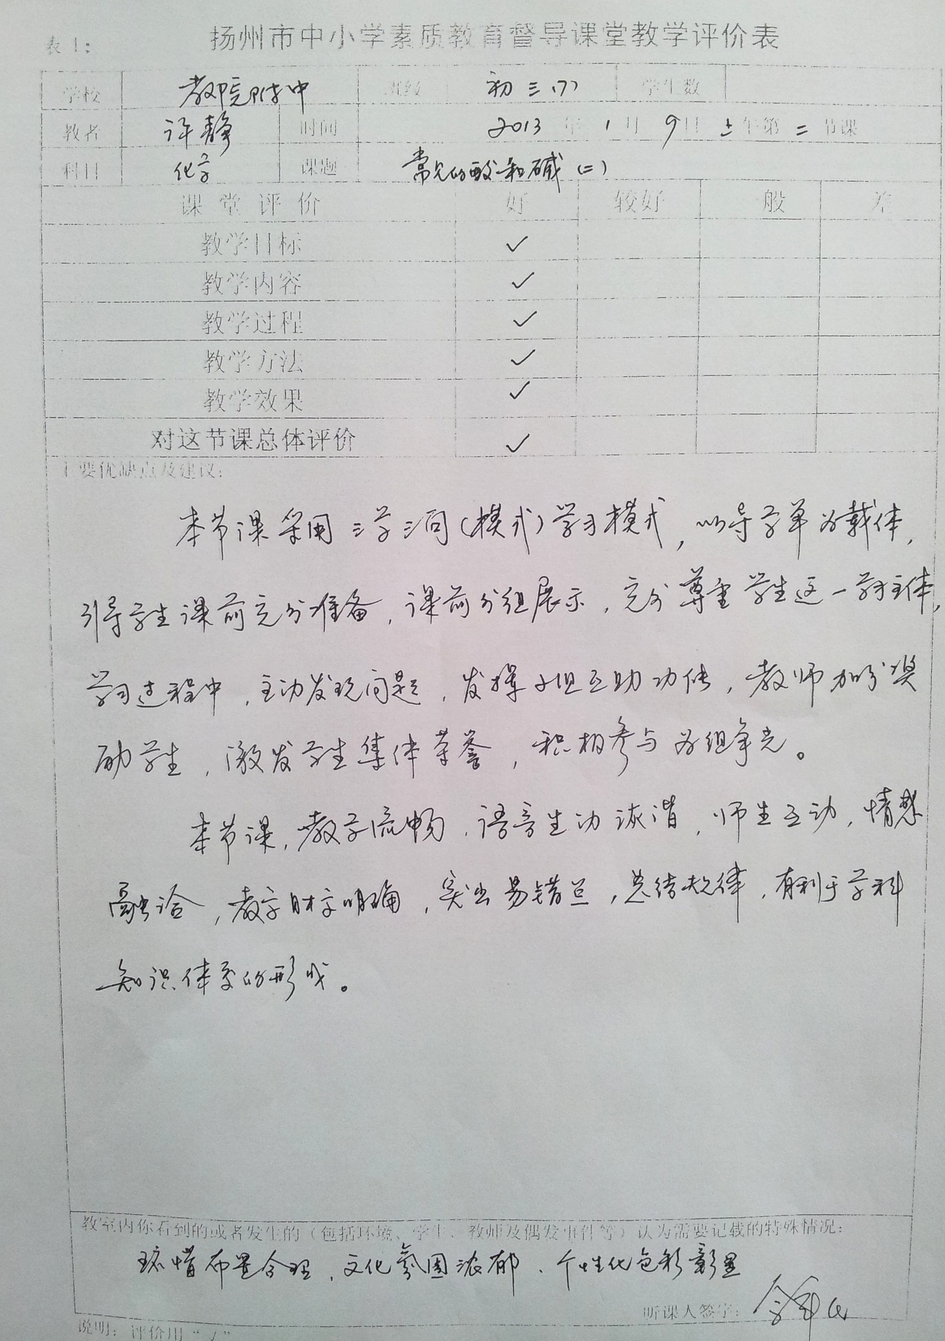 表1:
扬州市中小学素质教育督导课堂教学评价表
学校 教院附中 班级 初三(7) 学生数
教者 许静 时间 2013年1月9日上午第二节课
科目 化学 课题 常见的酸和碱(二)
课堂评价 好 较好 一般 差
教学目标 ✓
教学内容 ✓
教学过程 ✓
教学方法 ✓
教学效果 ✓
对这节课总体评价 ✓
主要优缺点及建议:
本节课采用三学三问(模式)学习模式,以导学单为载体,
引导学生课前充分准备,课前分组展示,充分尊重学生这一学习主体,
学习过程中,主动发现问题,发挥小组互助功传,教师加分奖
励学生,激发学生集体荣誉,积极参与为组争光。
本节课,教学流畅,语言生动诙谐,师生互动,情感
融洽,教学目标明确,突出易错点,总结规律,有利于学科
知识体系的形成。
教室内你看到的或者发生的(包括环境、学生、教师及偶发事件等)认为需要记载的特殊情况:
环境布置合理,文化氛围浓郁、个性化色彩彰显
听课人签字:
说明:评价用“√”